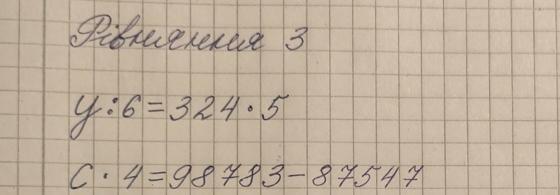 Рівняння 3
у:6=324·5
с·4=98783-87547